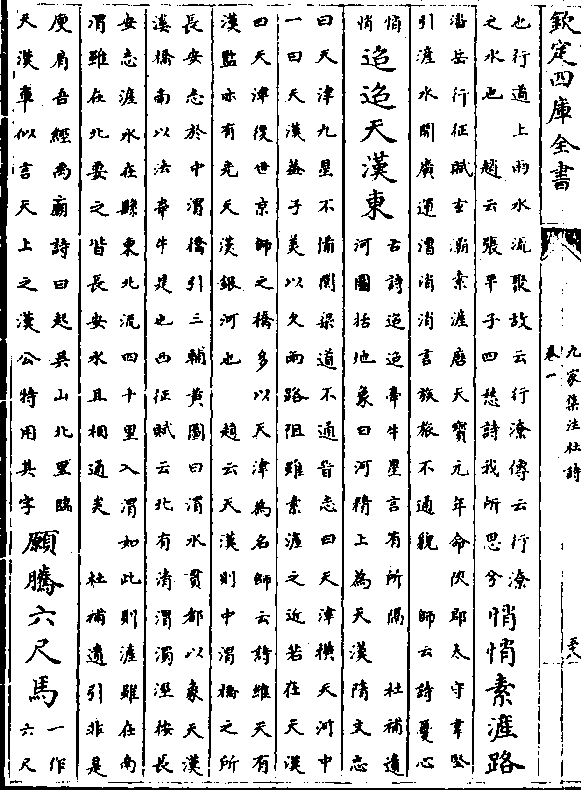 欽定四庫全書
九家集注杜詩
卷一
也行道上雨水流聚故云行潦傳云行潦
之水也 趙云張平子四愁詩我所思兮
悄悄素滻路
潘岳行征賦玄灞素滻唐天寶元年命陜郡太守韋堅
引滻水開廣運潭消消言族旅不通貌 師云詩憂心
悄
悄
迢迢天漢東
古詩迢迢牽牛星言有所隔 杜補遺
河圖括地象曰河精上為天漢 隋文志
曰天津九星不備關梁道不通晉志曰天津横天河中
一曰天漢蓋子美以久雨路阻雖素滻之近若在天漢
曰天津後世京師之橋多以天津為名師云詩維天有
漢監亦有光天漢銀河也 趙云天漢則中渭橋之所
長安志於中渭橋引三輔黃圖曰渭水貫都以象天漢
橋南以法牽牛是也西征賦云北有清渭濁涇按長
安志滻水在縣東北流四十里入渭如此則滻雖在南
渭雖在北要之皆長安水且相通矣 杜補遺引非是
庾肩吾經禹廟詩曰起吳山北臨
天漢似言天上之漢公特用其字
願騰六尺馬
一作
六尺